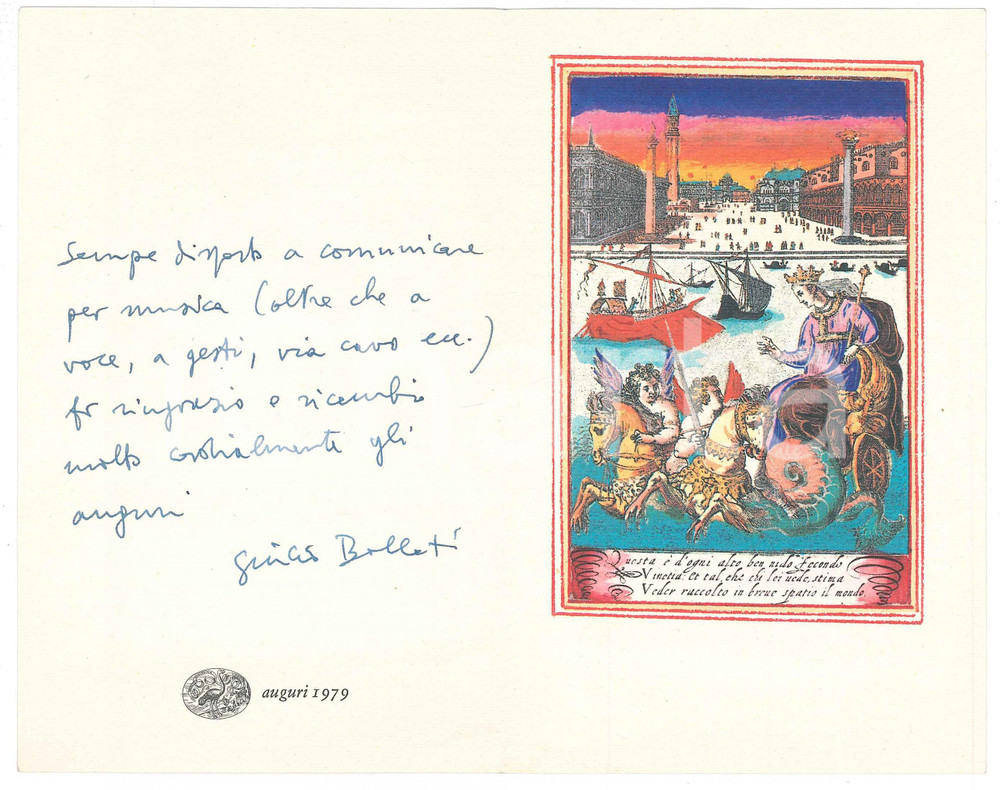 Sempre disposto a comunicare
per musica (oltre che a
voce, a gesti, via cavo ecc.)
La ringrazio e ricambio
molto cordialmente gli
auguri
Giulio Bollati
auguri 1979
Questa e d'ogni alto ben nido fecondo
Vinetia. Et tal, che chi lei uede, stima
Veder raccolto in breue spatio il mondo.